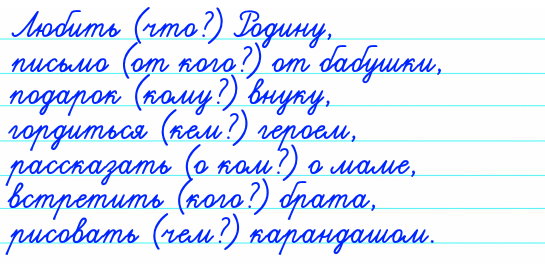 Любить (что?) Родину,
письмо (от кого?) от бабушки,
подарок (кому?) внуку,
гордиться (кем?) героем,
рассказать (о ком?) о маме,
встретить (кого?) брата,
рисовать (чем?) карандашом.